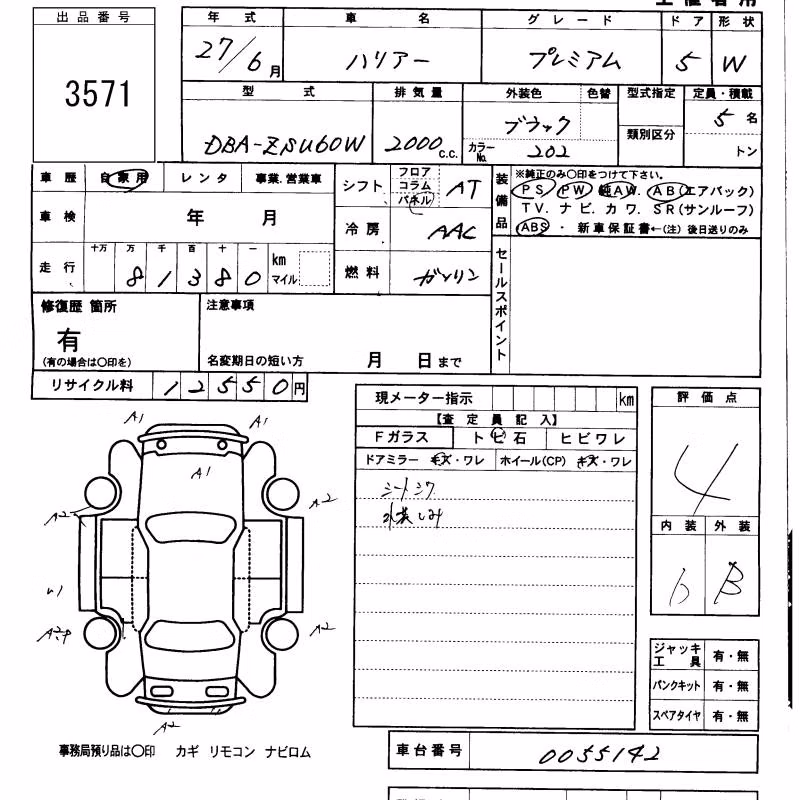 出品番号
3571
年式 車名 グレード ドア 形状
27/6月 ハリアー プレミアム 5 W
型式 排気量 外装色 色替 型式指定 定員・積載
DBA-ZSU60W 2000c.c. ブラック 類別区分 5名
カラーNo. 202 トン
車歴 自家用 レンタ 事業.営業車
車検 年 月
走行 十万 万 千 百 十 一
81380 km マイル
シフト フロア コラム パネル AT
冷房 AAC
燃料 ガソリン
装備品
※純正のみ〇印をつけて下さい。
PS PW 純AW. AB(エアバック)
TV. ナビ. カワ. SR(サンルーフ)
ABS ・ 新車保証書←(注) 後日送りのみ
セールスポイント
修復歴 箇所
有
(有の場合は〇印を)
注意事項
名変期日の短い方 月 日まで
リサイクル料 12550円
現メーター指示 km
【査定員記入】
Fガラス トビ石 ヒビワレ
ドアミラー キズ・ワレ ホイール(CP) キズ・ワレ
シートシワ
内装しみ
評価点
4
内装 外装
b B
A1 A1
A1
A2 A2
A2
A2
ジャッキ工具 有・無
パンクキット 有・無
スペアタイヤ 有・無
事務局預り品は〇印 カギ リモコン ナビロム
車台番号 0055142